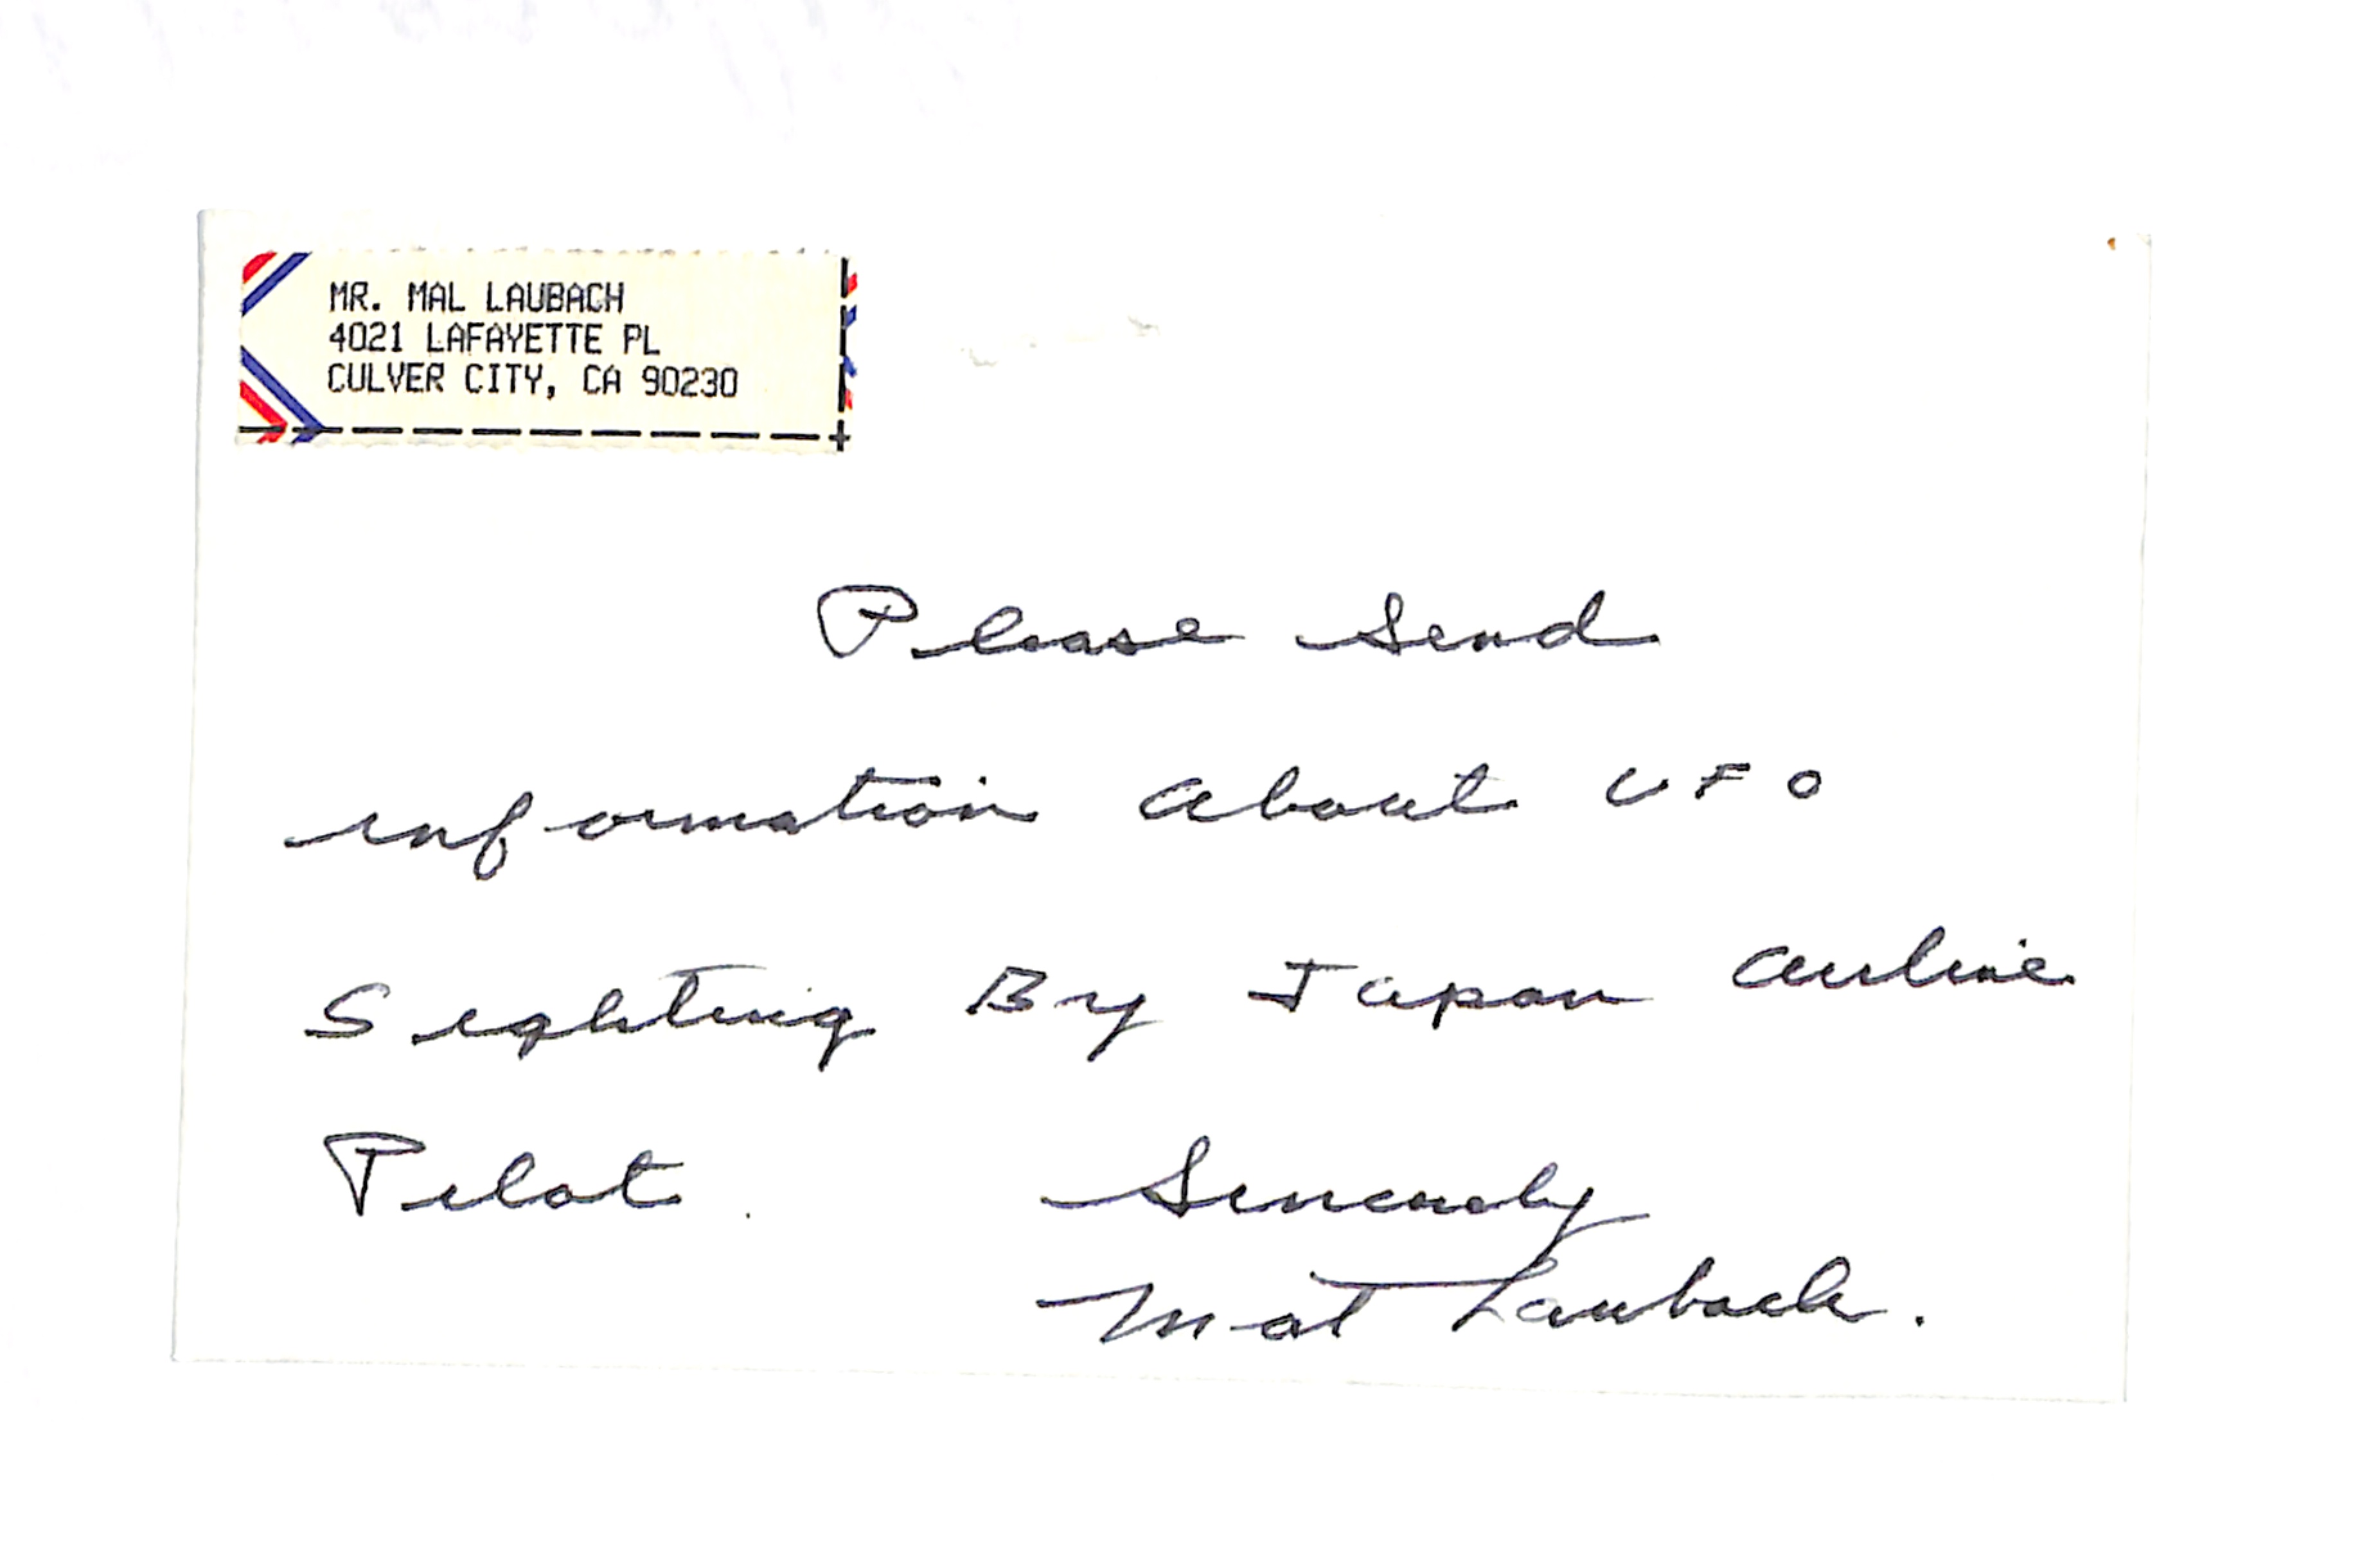 MR. MAL LAUBACH
4021 LAFAYETTE PL
CULVER CITY, CA 90230
Please Send
information about UFO
Sighting By Japan airline
Pilot.
Sincerely
Mal Laubach.